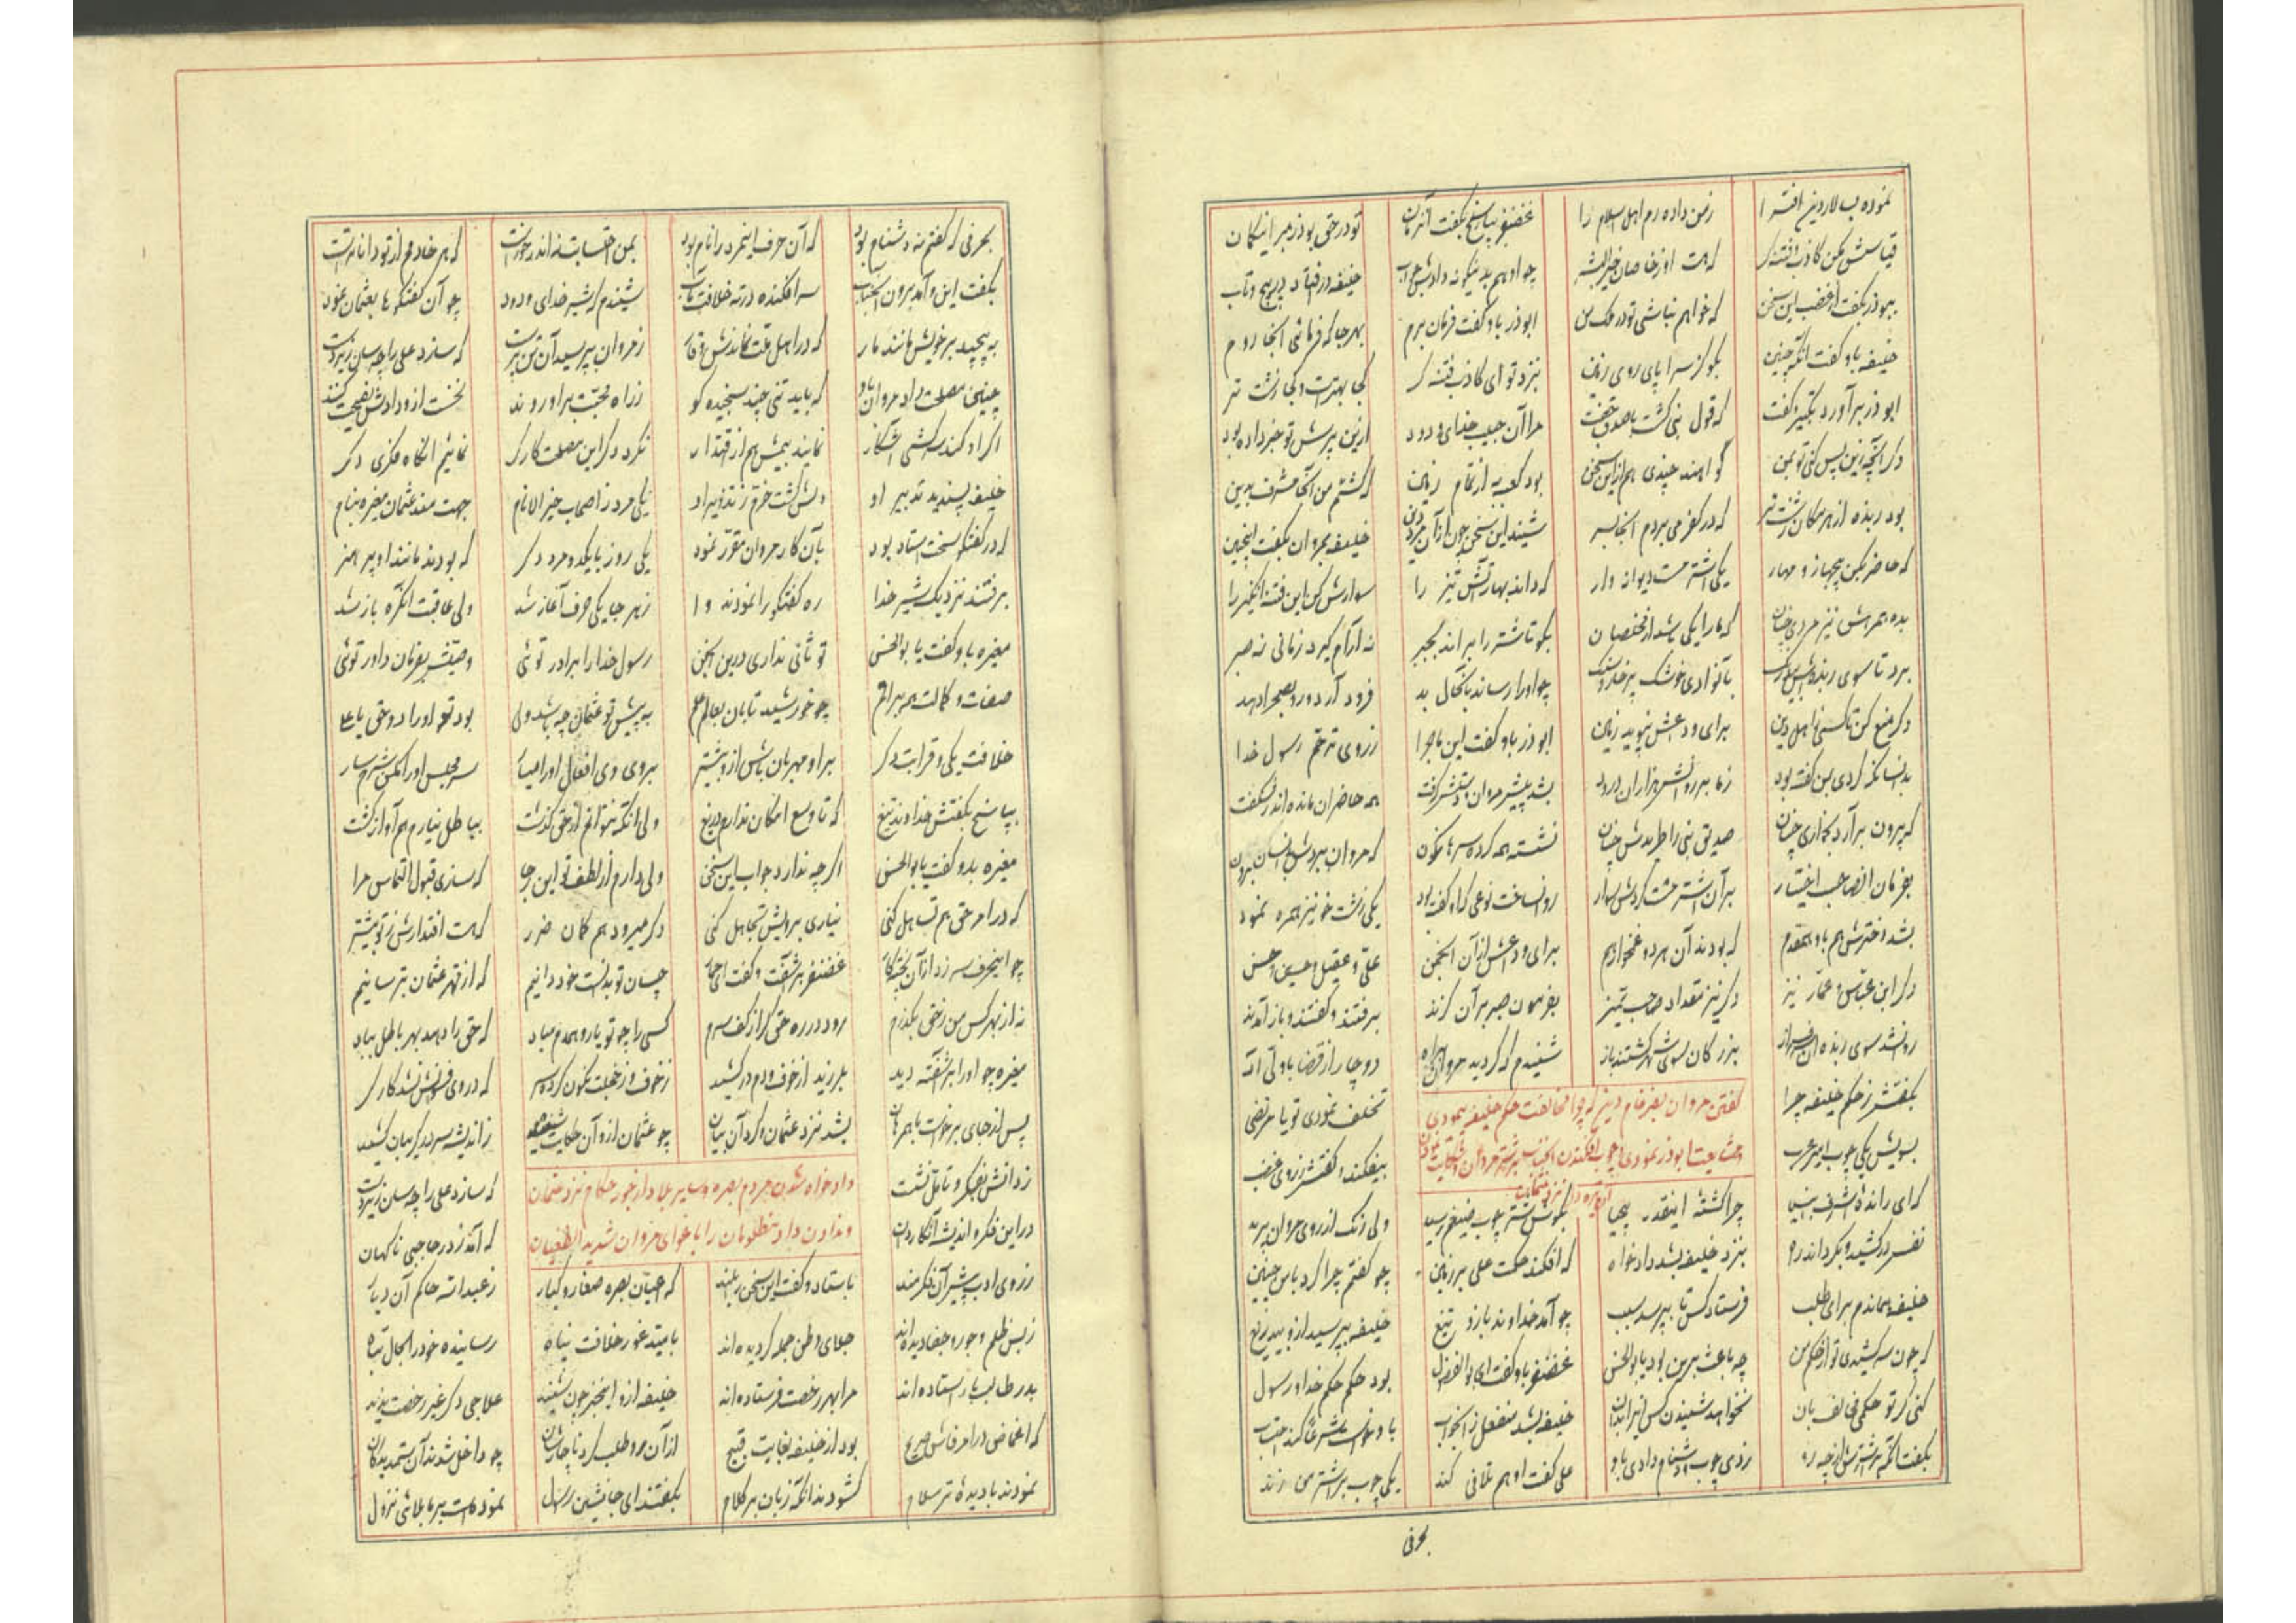 نموده بسالار دین افترا زمن داده رم اهل اسلام را غضنفر بپاسخ بگفت آنزمان تو در حق بوذر مبر این گمان
قیاسش مکن کاذب و فتنه گر که هست او ز خاصان خیرالبشر چو او هم بدینگونه دادش جواب خلیفه در افتاد در پیچ و تاب
ببوذر بگفت از غضب این سخن که خواهم نباشی تو در ملک من ابوذر باو گفت فرمان برم بهر جا که فرمائی آنجا روم
خلیفه باو گفت آنگه چنین بگو کز سراپای روی زمین بنزد تو ای کاذب فتنه گر کجا بهتر است و کجا زشت تر
ابوذر برآورد تکبیر و گفت که قول نبی گشت با صدق جفت مرا آن حبیب خدای ودود ازین پرسش تو خبر داده بود
دگر آنچه زین پس کنی تو بمن گواهند چندی هم از این سخن بود کعبه به از تمام زمین که گشتم من آنجا مشرف بدین
بود ربذه از هر مکان زشت تر که در کفر می بردم آنجا بسر شنید این سخن چون از آن مرد دین خلیفه بمروان بگفت اینچنین
که حاضر بکن بی جهاز و مهار یکی اشتر مست دیوانه وار که داند بهار آتش تیز را سوارش کن این فتنه انگیز را
بده همرهش نیز مردی چنان که ما را یکی باشد از مخلصان بگو تا شتر را براند بجبر نه آرام گیرد زمانی نه صبر
برد تا سوی ربذه چو او را رساند بآنحال بد فرود آرد و رو بصحرا دهد
دگر منع کن تا کسی ز اهل دین برای وداعش نپوید زمین ابوذر باو گفت این ماجرا ز روی ترحم رسول خدا
بدانسانکه کردی بمن گفته بود ز ما بر روانش هزاران درود بشد پیشتر مروان و دستش گرفت همه حاضران مانده اندر شگفت
که بیرون برآرد بخواری چنان صدیق نبی را طریدش چنان نشسته همه کرده سرها نگون که مروان ببردش بدانسان برون
بفرمان آنصاحب اختیار بر آن اشتر مست کردش سوار روانساخت نوعی که او گفته بود یکی زشت خو نیز همره نمود
بشد دخترش هم باو همقدم که بودند آن هر دو غمخوار هم برای وداعش از آن انجمن علی و عقیل و حسین و حسن
دگر ابن عباس و عمار نیز دگر نیز مقداد صاحب تمیز بفرمون صبر بر آن گزند برفتند و گفتند و باز آمدند
روانشد سوی ربذه آن سرفراز بزرگان سوی شهر گشتند باز شنیدم که گردید مروان براه دوچار از قضا با ولی اله
گفتن مروان بغضنفر که چرا مخالفت حکم خلیفه نمودی
و مشایعت ابوذر نمودی
بگفتش ز حکم خلیفه چرا تخلف نمودی تو یا مرتضی
بسویش یکی چوب امیر عرب بیفکند و گفتش ز روی غضب
که ای رانده اشرف انبیا چرا گشته اینقدر بیحیا بگوش شتر چوب ضیغم رسید ولی رنگ از روی مروان پرید
نفس در کشید و بگرداند ره بنزد خلیفه بشد دادخواه که افکند حکمت علی بر زمین چو گفتم چرا کرد با من چنین
خلیفه هماندم برای طلب فرستاد کس تا بپرسد سبب چو آمد خداوند بازو و تیغ خلیفه بپرسید از و بیدریغ
که چون سر کشیدی تو از حکم من چه باعث برین بود یا بوالحسن غضنفر باو گفت ای بوالفضول بود حکم حکم خدا و رسول
کنی گر تو حکمی خلاف بان نخواهد شنیدن کس از بندگان خلیفه بشد منفعل زانجواب
بگفت آنگه بر شترش از چه رو زدی چوب و دشنام دادی باو علی گفت او هم تلافی کند یکی چوب بر اشتر من زند
بحرفی
بحرفی که گفتم نه دشنام بود که آن حرف اینمرد را نام بود بمن احتسابت نه اندر خور است که هر خادمم از تو داناتر است
بگفت این و آمد برون آنجناب سر افکنده در ته خلافت مآب شنیدم که شیر خدای ودود چو آن گفتگوها بعثمان نمود
به پیچید بر خویش مانند مار که در اهل ملت نماندش وقار ز مروان بپرسید آن تن پرست که سازد علی را چه سان زیردست
چنین مصلحت داد مروان باو که باید تنی چند سنجیده گو ز راه محبت برو روند نخست از ودادش نصیحت کنند
اگر او کند سرکشی آشکار نمایند بیمش هم از اقتدار نگردد گر این مصلحت کارگر نمائیم آنگاه فکری دگر
خلیفه پسندید تدبیر او دلش گشت خرم ز تزویر او یکی مرد ز اصحاب خیرالانام جهت مند عثمان مغیره بنام
که در گفتگو سخت استاد بود بآن کار مروان مقرر نمود یکی روز با یکدو مرد دگر که بودند مانند او پر هنر
برفتند نزدیک شیر خدا ره گفتگو را نمودند وا ز هر جا یکی حرف آغاز شد ولی عاقبت آنگره باز شد
مغیره باو گفت یا بوالحسن تو ثانی نداری درین انجمن رسول خدا را برادر توئی وصیش بفرمان داور توئی
صفات و کمالت همه بر امم چو خورشید تابان بعالم علم به پیش تو عثمان چه باشد ولی بود حق او را دو حق یا علی
خلافت یکی و قرابت دگر بر او مهربان باش ازو بیشتر بروی وی افعال او را میار سر مجلس او را مکن شرمسار
بپاسخ بگفتش خداوند تیغ که تا وسع امکان ندارم دریغ ولی آنکه نتوانم از حق گذشت بباطل نیارم هم آواز گشت
مغیره بدو گفت یا بوالحسن اگر چه ندارد جواب این سخن ولی دارم از لطف تو این رجا که سازی قبول التماس مرا
که در امر حق هم تساهل کنی نیاری برویش تجاهل کنی دگر میرود هم گمان ضرر که هست اقتدارش ز تو بیشتر
چو اینحرف سر زد از آن غضنفر برآشفت و گفت چسان تو بدانست خود دانیم که از قهر عثمان بترسانیم
نه از بهر کس من ز حق بگذرم رود در ره حق گر از کف سرم کسی را چو تو یار و همدم مباد که حق را دهد بهر باطل بباد
مغیره چو او را برآشفته دید بلرزید از خوف و دم در کشید ز خوف و ز خجلت نگون کرده سر که در وی فسونش نشد کارگر
پس از جای برخواست با همرهان بشد نزد عثمان و کرد آن بیان چو عثمان از و آن حکایت شنید ز اندیشه سر در گریبان کشید
دادخواه شدن مردم بصره و سایر بلاد از جور حکام نزد عثمان
و ندادن داد مظلومان را باغوای مروان شدید الطغیان
ز دانش بفکر و تامل نشست که سازد علی را چه سان زیردست
در این فکر و اندیشه که آمد ز در حاجبی ناگهان
ز روی ادب پیش آن فکرمند باستاد و گفت این سخن را بلند که اعیان بصره صغار و کبار ز عبداله حاکم آن دیار
ز بس ظلم و جور و جفا دیده اند جلای وطن جمله گردیده اند بامید غور خلافت پناه رسانیده خود را بحال تباه
بدر طالب بار استاده اند مرا بهر رخصت فرستاده اند خلیفه ازو اینخبر چون شنید علاجی دگر غیر رخصت ندید
که اغماض در امر فاش صریح بود از خلیفه بغایت قبیح از آن رو طلب کرد ناچارشان چو داخل شدند آن ستمدیدگان
نمودند با دیده تر سلام گشودند آنگه زبان بر کلام بگفتند ای جانشین رسول نموده است بر ما بلائی نزول